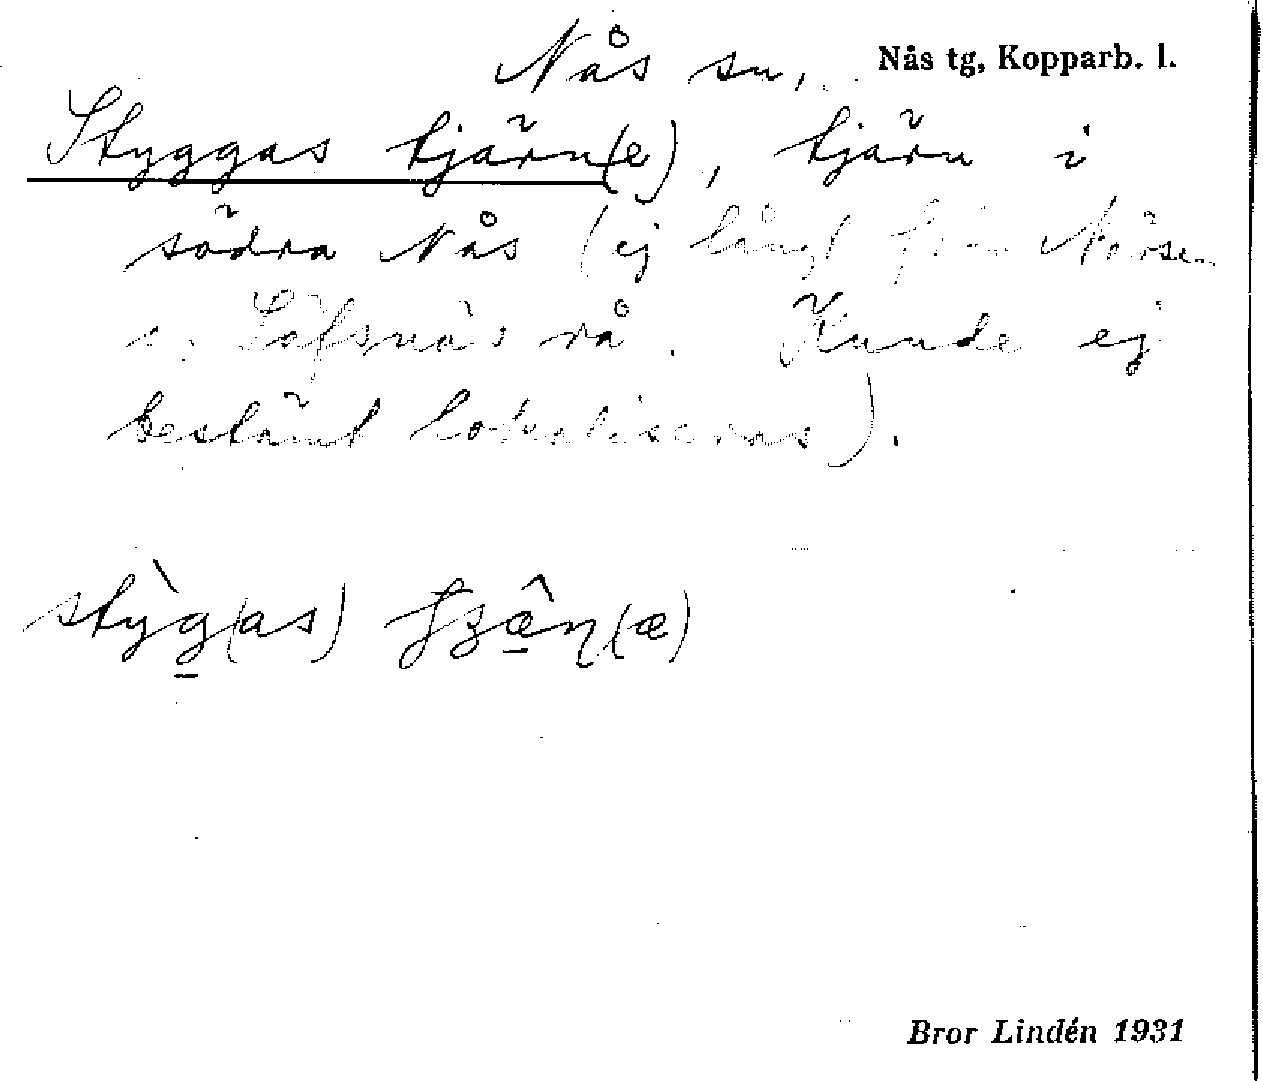 Nås sn, Nås tg, Kopparb. l.
Styggas tjärn(e), tjärn i
södra Nås (ej långt från Närsen
i Löfsnäs rå. Kunde ej
bestämt lokaliseras).
Bror Lindén 1931